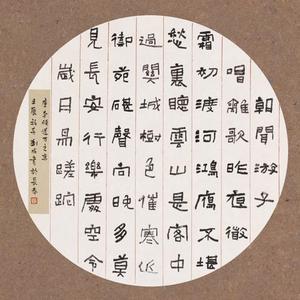 朝聞游子
唱離歌昨夜微
霜初渡河鴻雁不堪
愁裏聽雲山是客中
過關城樹色催寒近
御苑砧聲向晚多莫
見長安行樂處空令
歲日易蹉跎
李颀送魏万之京
壬辰於長春